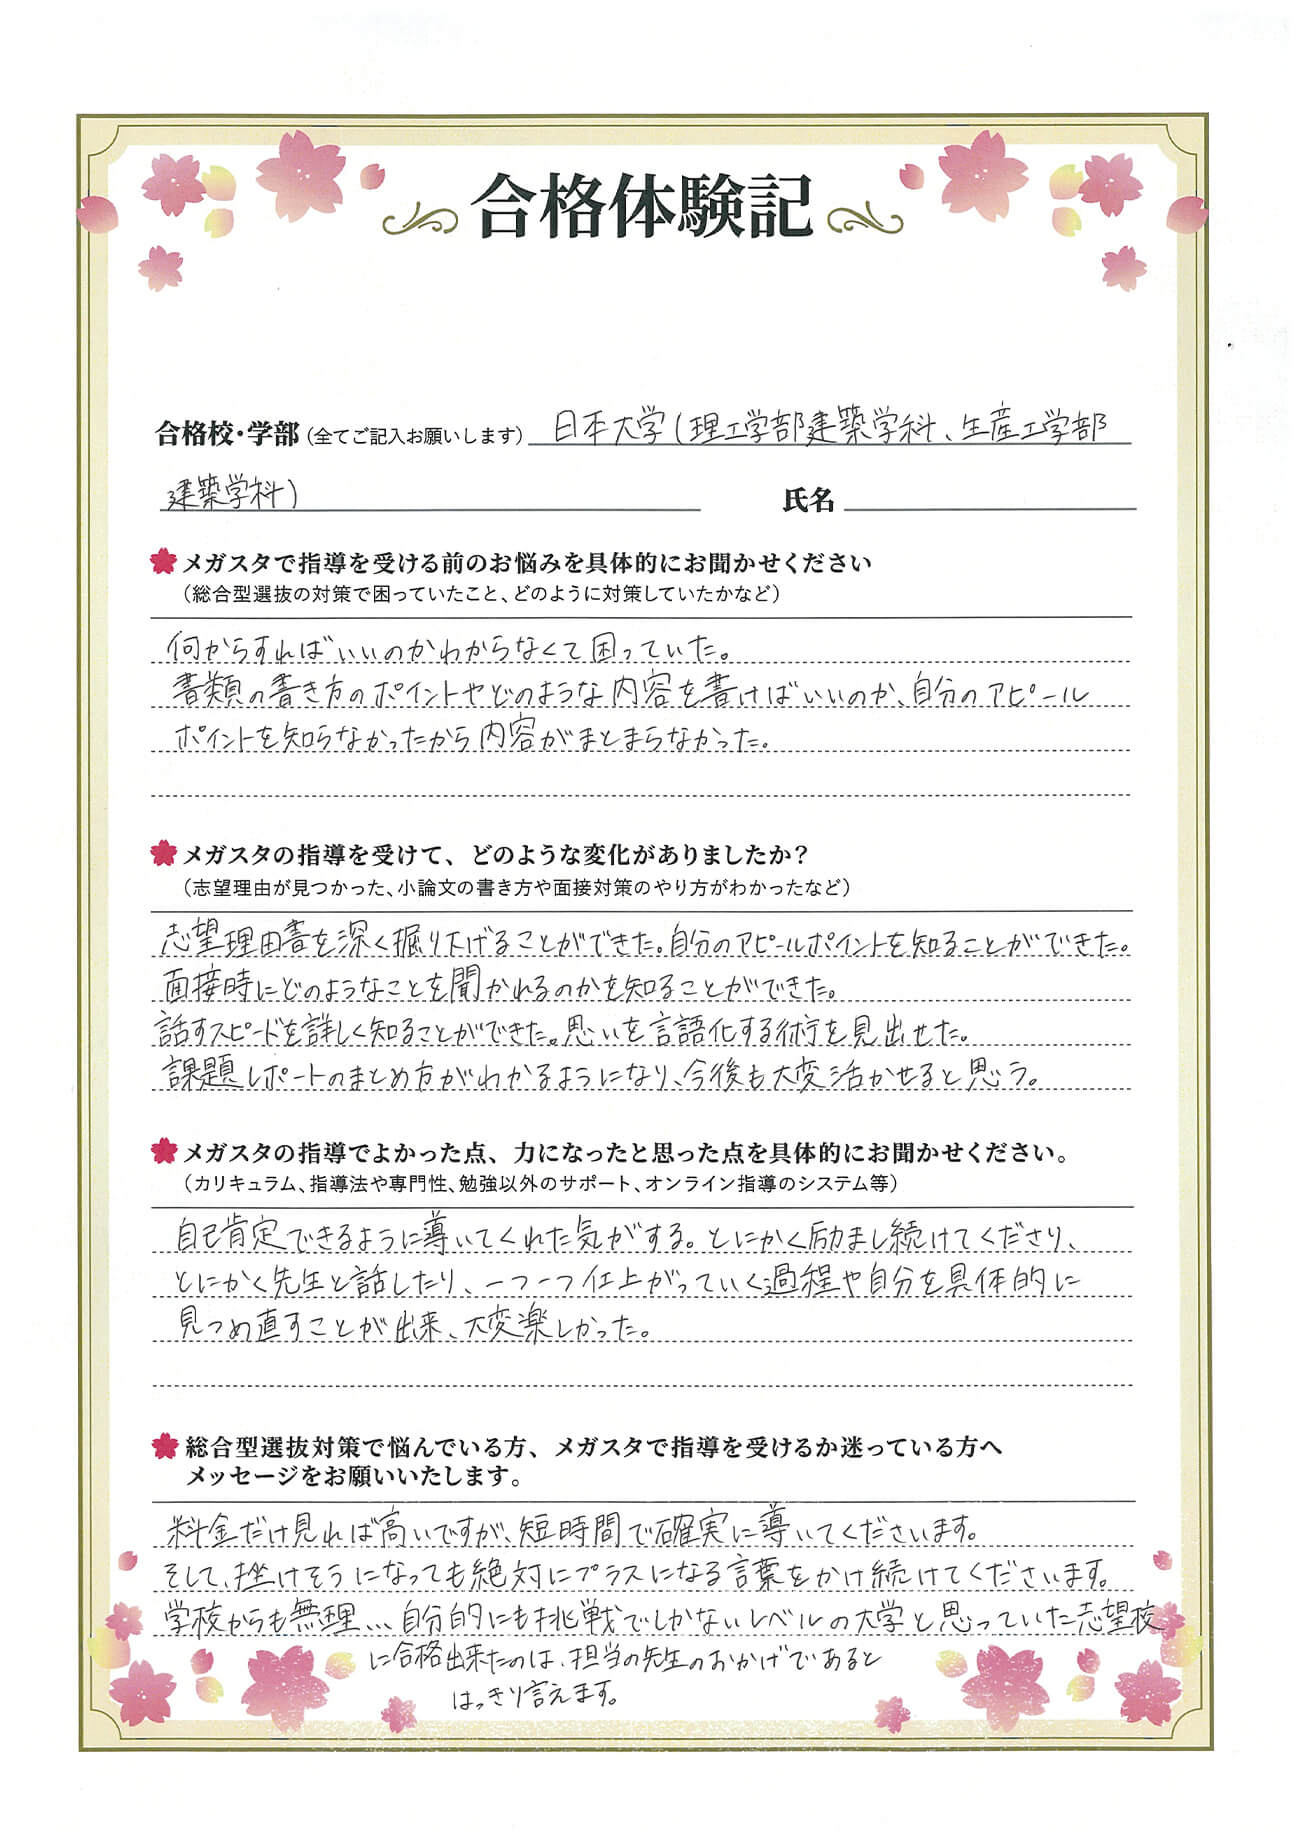 合格体験記
合格校・学部(全てご記入お願いします) 日本大学(理工学部建築学科、生産工学部
建築学科) 氏名
メガスタで指導を受ける前のお悩みを具体的にお聞かせください
(総合型選抜の対策で困っていたこと、どのように対策していたかなど)
何からすればいいのかわからなくて困っていた。
書類の書き方のポイントやどのような内容を書けばいいのか、自分のアピール
ポイントを知らなかったから内容がまとまらなかった。
メガスタの指導を受けて、どのような変化がありましたか?
(志望理由が見つかった、小論文の書き方や面接対策のやり方がわかったなど)
志望理由書を深く掘り下げることができた。自分のアピールポイントを知ることができた。
面接時にどのようなことを聞かれるのかを知ることができた。
話すスピードを詳しく知ることができた。思いを言語化する術を見出せた。
課題レポートのまとめ方がわかるようになり、今後も大変活かせると思う。
メガスタの指導でよかった点、力になったと思った点を具体的にお聞かせください。
(カリキュラム、指導法や専門性、勉強以外のサポート、オンライン指導のシステム等)
自己肯定できるように導いてくれた気がする。とにかく励まし続けてくださり、
とにかく先生と話したり、一つ一つ仕上がっていく過程や自分を具体的に
見つめ直すことが出来、大変楽しかった。
総合型選抜対策で悩んでいる方、メガスタで指導を受けるか迷っている方へ
メッセージをお願いいたします。
料金だけ見れば高いですが、短時間で確実に導いてくださいます。
そして、挫けそうになっても絶対にプラスになる言葉をかけ続けてくださいます。
学校からも無理…自分的にも挑戦でしかないレベルの大学と思っていた志望校
に合格出来たのは、担当の先生のおかげであると
はっきり言えます。